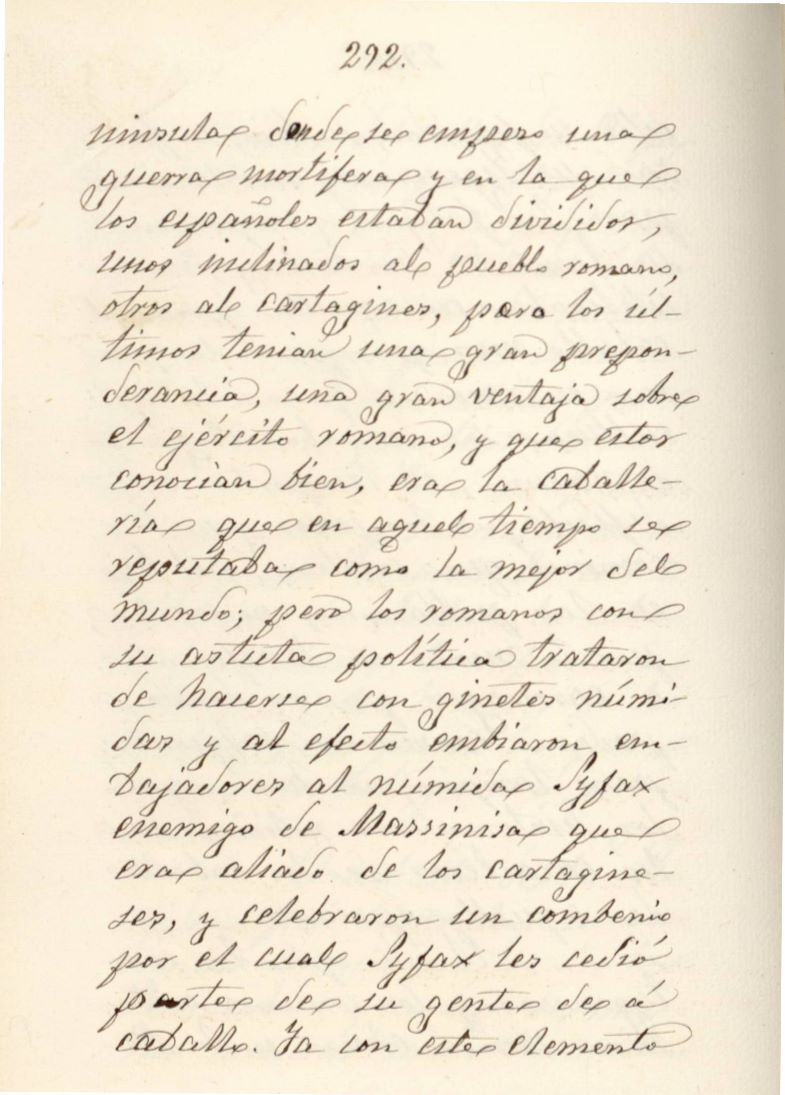 292.
ninsula donde se empezo una
guerra mortifera y en la que
los españoles estaban dividido​s,
unos inclinados al pueblo romano,
otros al cartagines, pero los úl-
timos tenian una gran prepon-
derancia, una gran ventaja sobre
el ejército romano, y que estos
conocian bien, era la caballe-
ría que en aquel tiempo se
reputaba como la mejor del
mundo; pero los romanos con
su astuta política trataron
de hacerse con ginetes númi-
das y al efecto embiaron em-
bajadores al númida Syfax
enemigo de Massinisa que
era aliado de los cartagine-
ses, y celebraron un combenio
por el cual Syfax les cedió
parte de su gente de á
caballo. Ya con este elemento